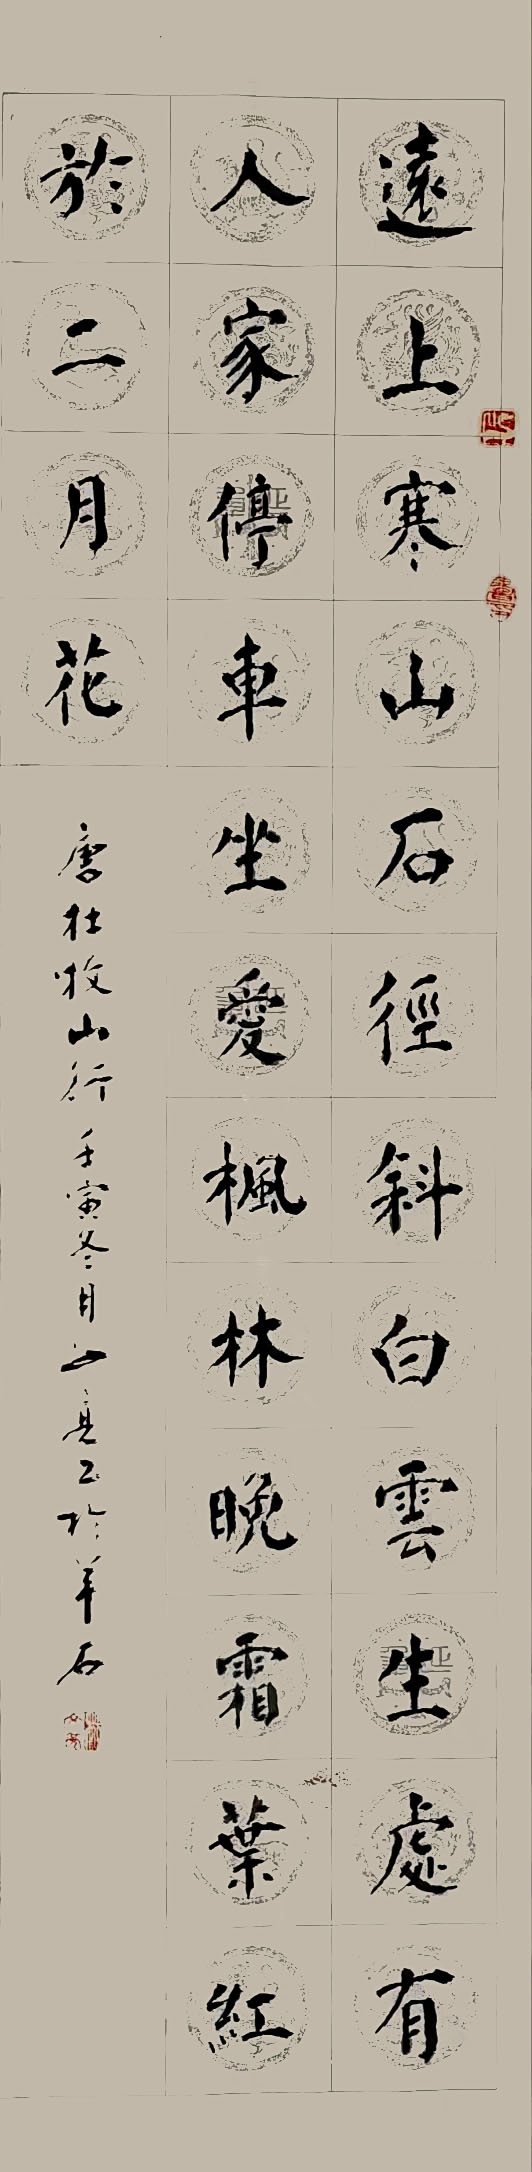 遠上寒山石徑斜白雲生處有
人家停車坐愛楓林晚霜葉紅
於二月花
唐杜牧山行壬寅冬月
於羊石